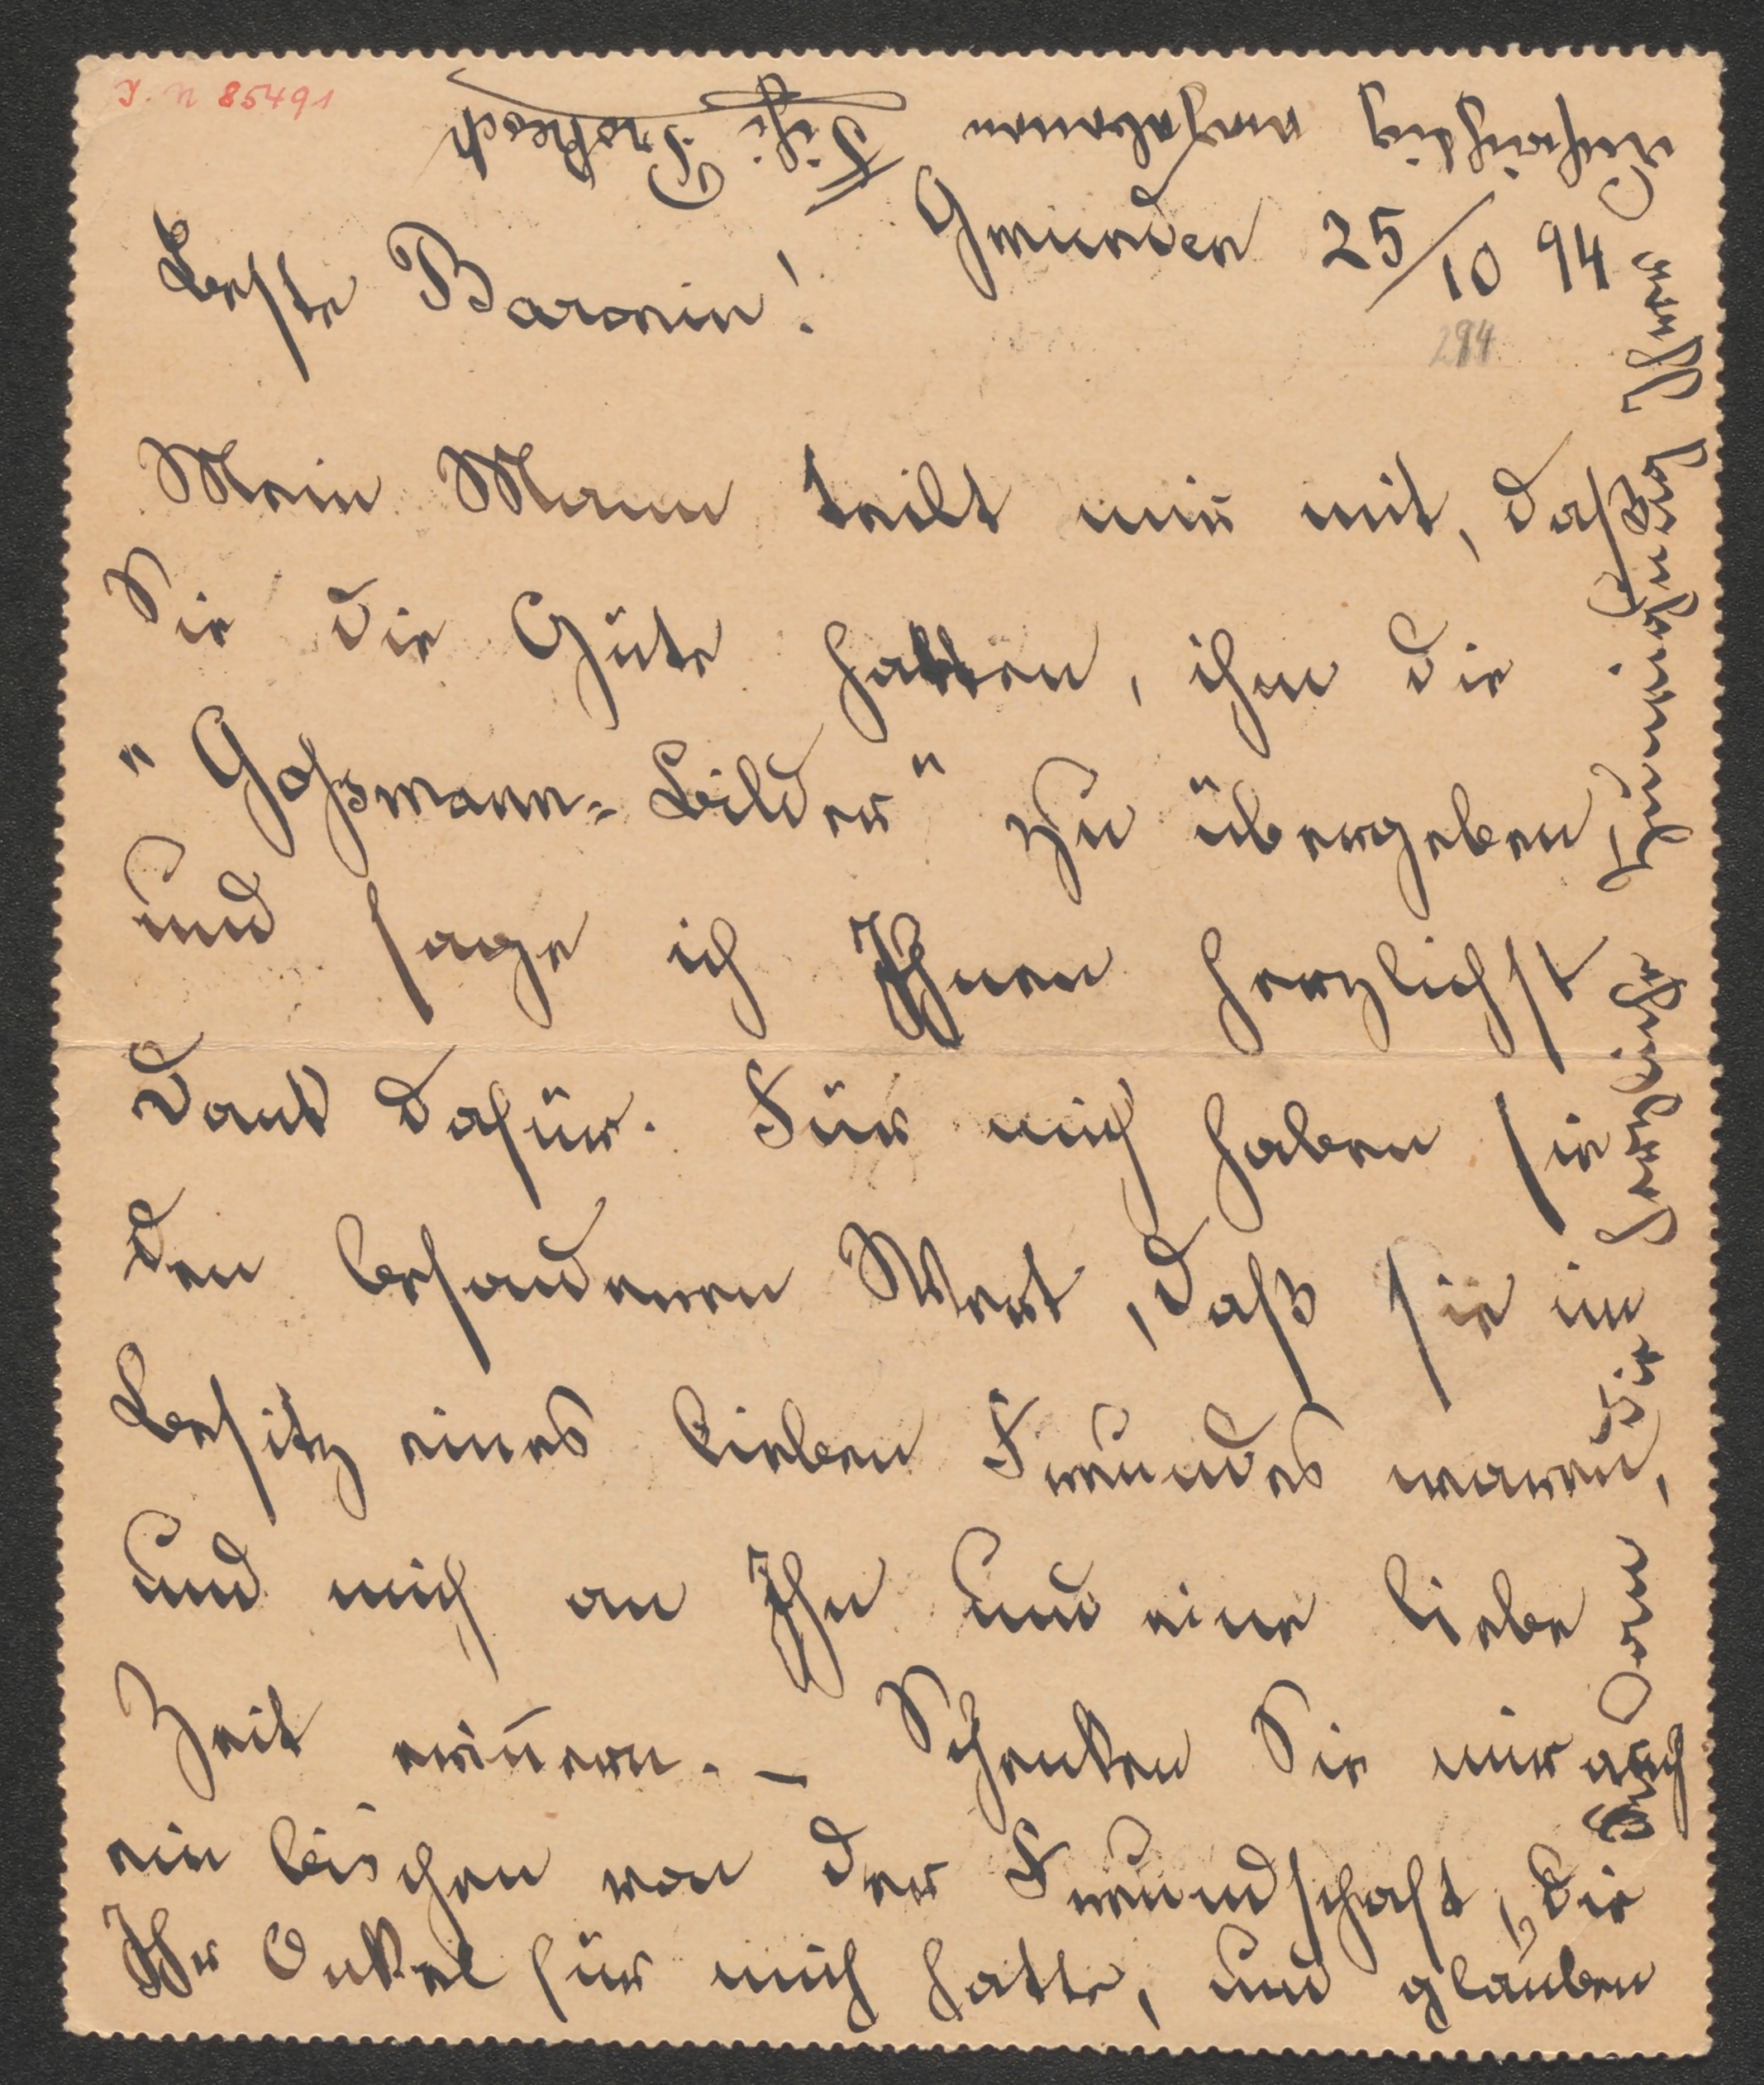 I. N 85491
Gmunden 25/10 94
294
Beste Baronin!
Mein Mann teilt mir mit, daß
Sie die Güte hatten, ihm die
"Goßmann-Bilder" zu übergeben
und sage ich Ihnen herzlichst
Dank dafür. Für mich haben sie
den besonderen Wert, daß sie im
Besitz eines lieben Freundes waren,
und mich an Ihn und eine liebe
Zeit erinnern. – Schenken Sie mir auch
ein bischen von der Freundschaft, die
Ihr Onkel für mich hatte, und glauben
Sie an die herzliche Zuneigung Ihrer
aufrichtig ergebenen Fifi Prokesch